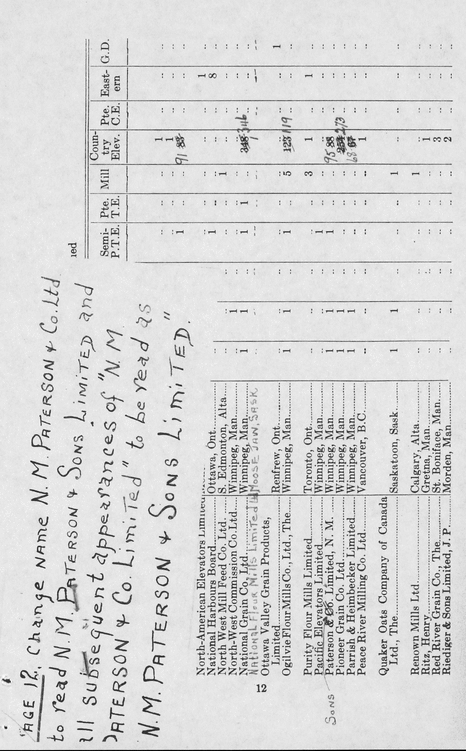 PAGE 12, Change Name N.M. PATERSON & Co. Ltd
to read N.M. PATERSON & SONS LIMITED and
all subsequent appearances of "N.M
PATERSON & Co. Limited" to be read as
"N.M. PATERSON & SONS LIMITED."
Semi-P.T.E. Pte. T.E. Mill Country Elev. Pte. C.E. Eastern G.D.
North-American Elevators Limited
National Harbours Board Ottawa, Ont.
North West Mill Feed Co. Ltd. S. Edmonton, Alta.
North-West Commission Co. Ltd. Winnipeg, Man.
National Grain Co. Ltd. Winnipeg, Man.
National Flour Mills Limited Moose Jaw, Sask
Ottawa Valley Grain Products,
Limited Renfrew, Ont.
Ogilvie Flour Mills Co., Ltd., The Winnipeg, Man.
Purity Flour Mills Limited Toronto, Ont.
Pacific Elevators Limited Winnipeg, Man.
Paterson & Co. Limited, N. M. Winnipeg, Man.
SONS
Pioneer Grain Co. Ltd. Winnipeg, Man.
Parrish & Heimbecker Limited Winnipeg, Man.
Peace River Milling Co. Ltd. Vancouver, B.C.
Quaker Oats Company of Canada
Ltd., The Saskatoon, Sask.
Renown Mills Ltd. Calgary, Alta.
Ritz, Henry Gretna, Man.
Red River Grain Co., The St. Boniface, Man.
Riediger & Sons Limited, J. P. Morden, Man.
12